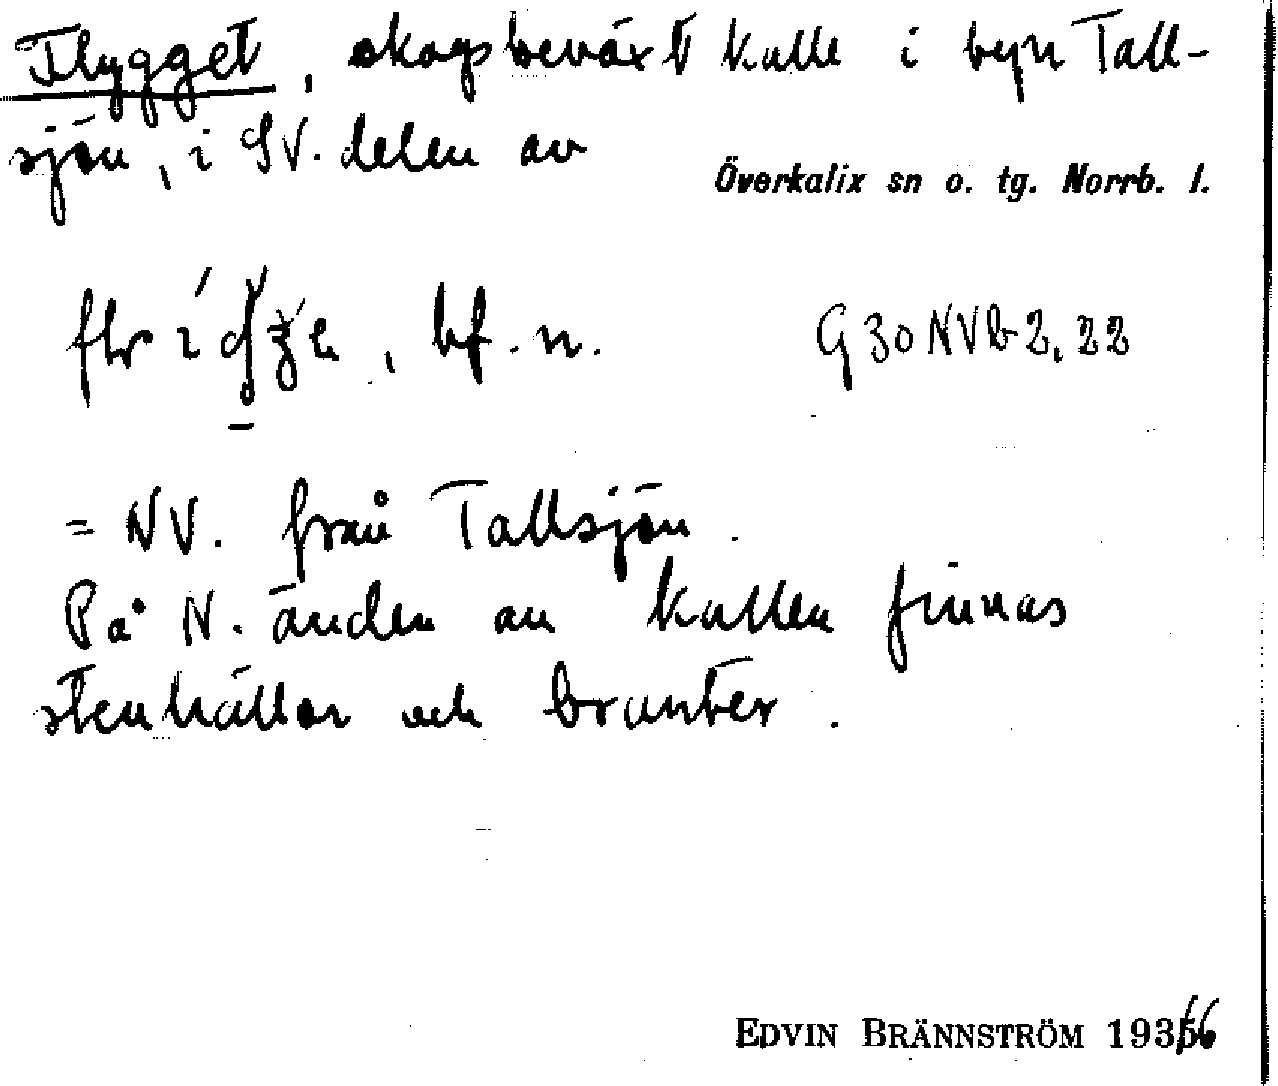 Flygget, skogsbeväxt kulle i byn Tall-
sjön, i SV. delen av
Överkalix sn o. tg. Norrb. l.
, bf. n. G 30 NV b 2, 22
= NV. från Tallsjön.
På N. änden av kullen finnas
stenhällor och branter.
EDVIN BRÄNNSTRÖM 1936